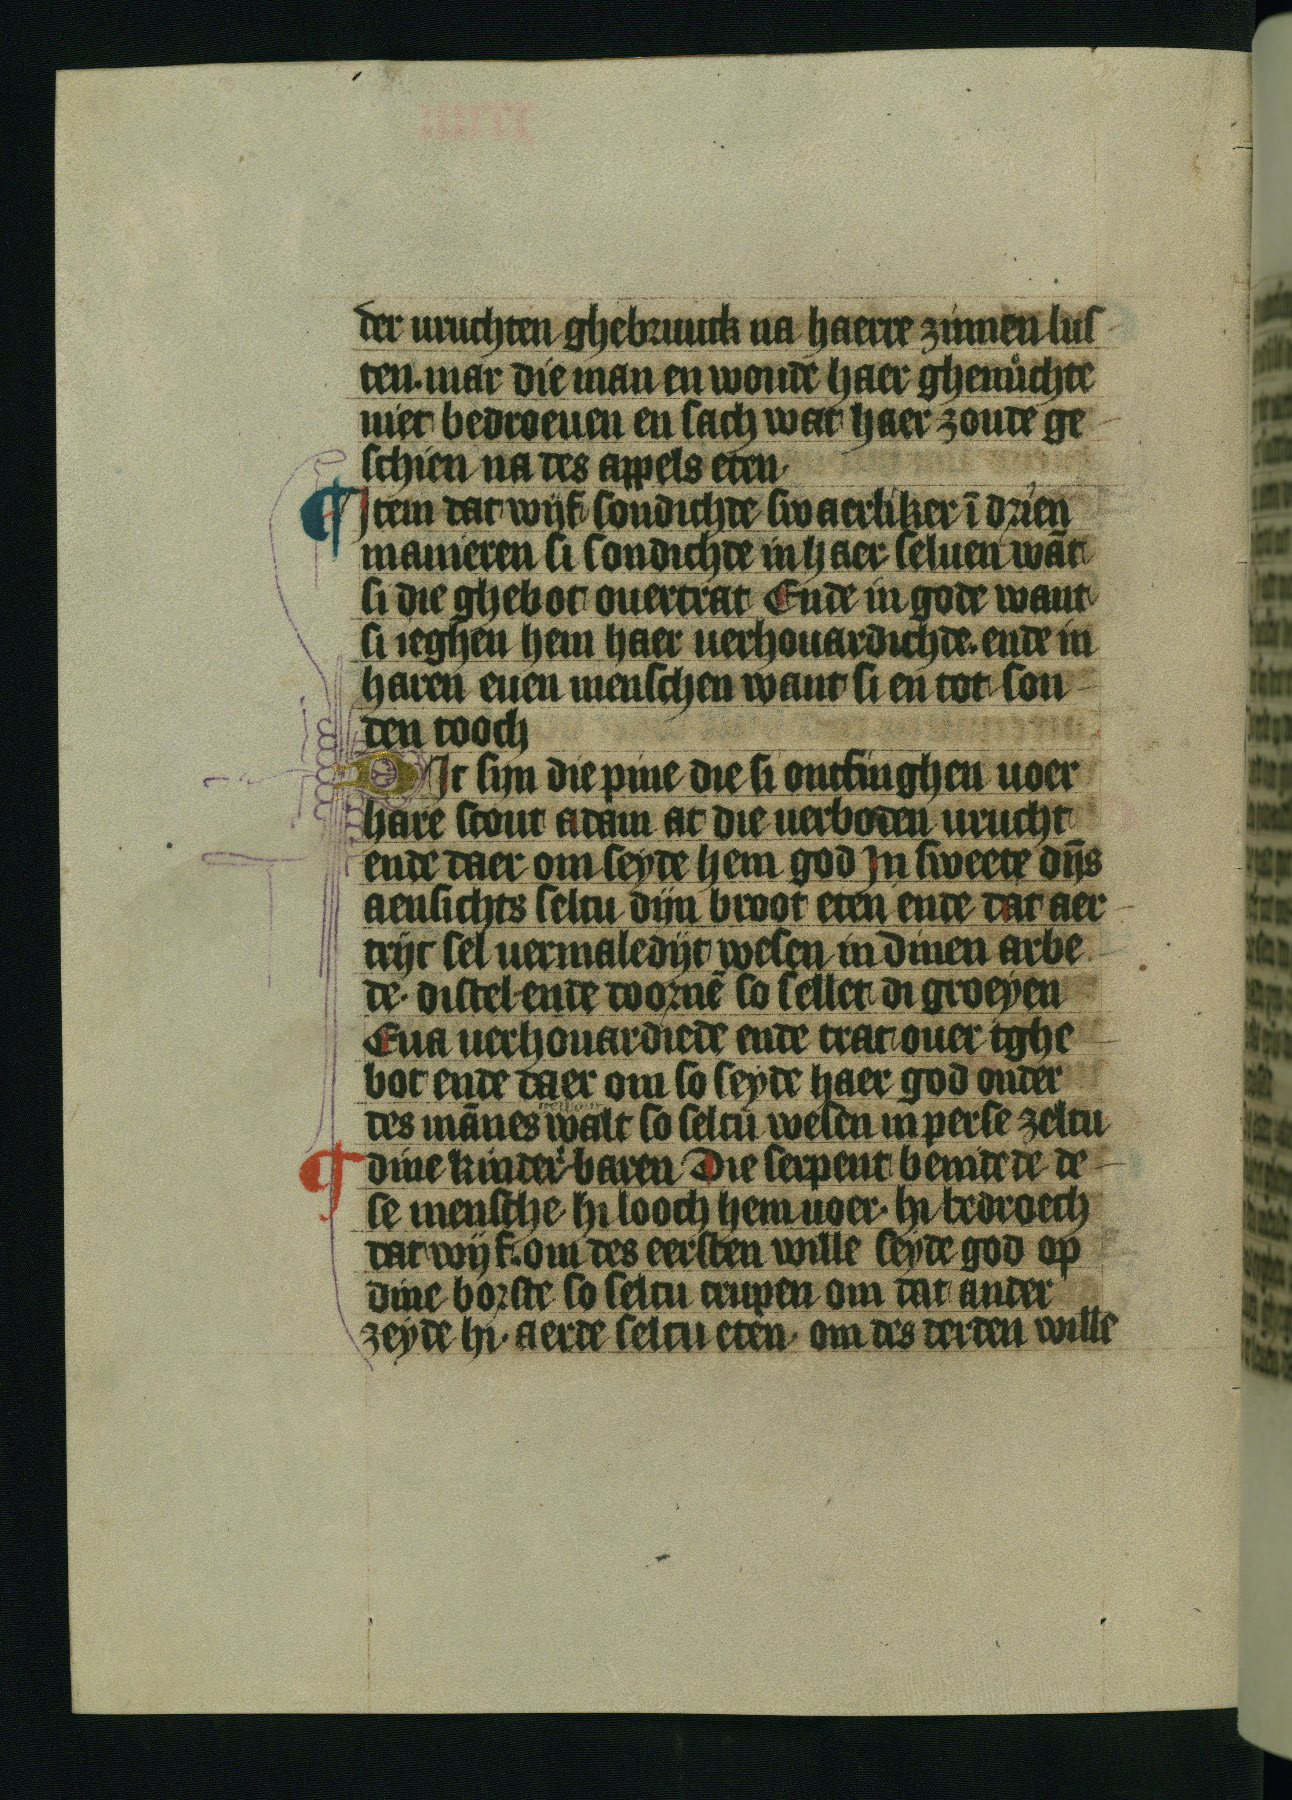 der uruchten ghebruuck na haerre zinnen lus
ten. mar die man en woude haer ghemůchte
niet bedroeuen en sach wat haer zoude ge
schien na des appels eten.
¶ Item dat wijf sondichte swaerliker ī drien
manieren si sondichte in haer seluen wāt
si die ghebot ouertrat Ende in gode want
si ieghen hem haer uerhouardichte. ende in
haren euen menschen want si en tot son
den tooch
Dit sijn die pine die si ontfinghen uoer
hare scout adam at die uerboden urucht
ende daer om seyde hem god In sweete dijns
aensichts seltu dijn broot eten ende dat aer
trijc sel uermaledijt wesen in dinen arbe
de. distel ende doornē so sellet di groeyen
Eua uerhouardiede ende trat ouer tghe
bot ende daer om so seyde haer god onder
des mānes walt so seltu wesen in perse zeltu
¶ dine kinder baren Die serpent benidede de
se mensche. hi looch hem uoer. hi bedroech
dat wijf. om des eersten wille seyde god op
dine borste so seltu crupen om dat ander
zeyde hi. aerde seltu eten. om des derden wille